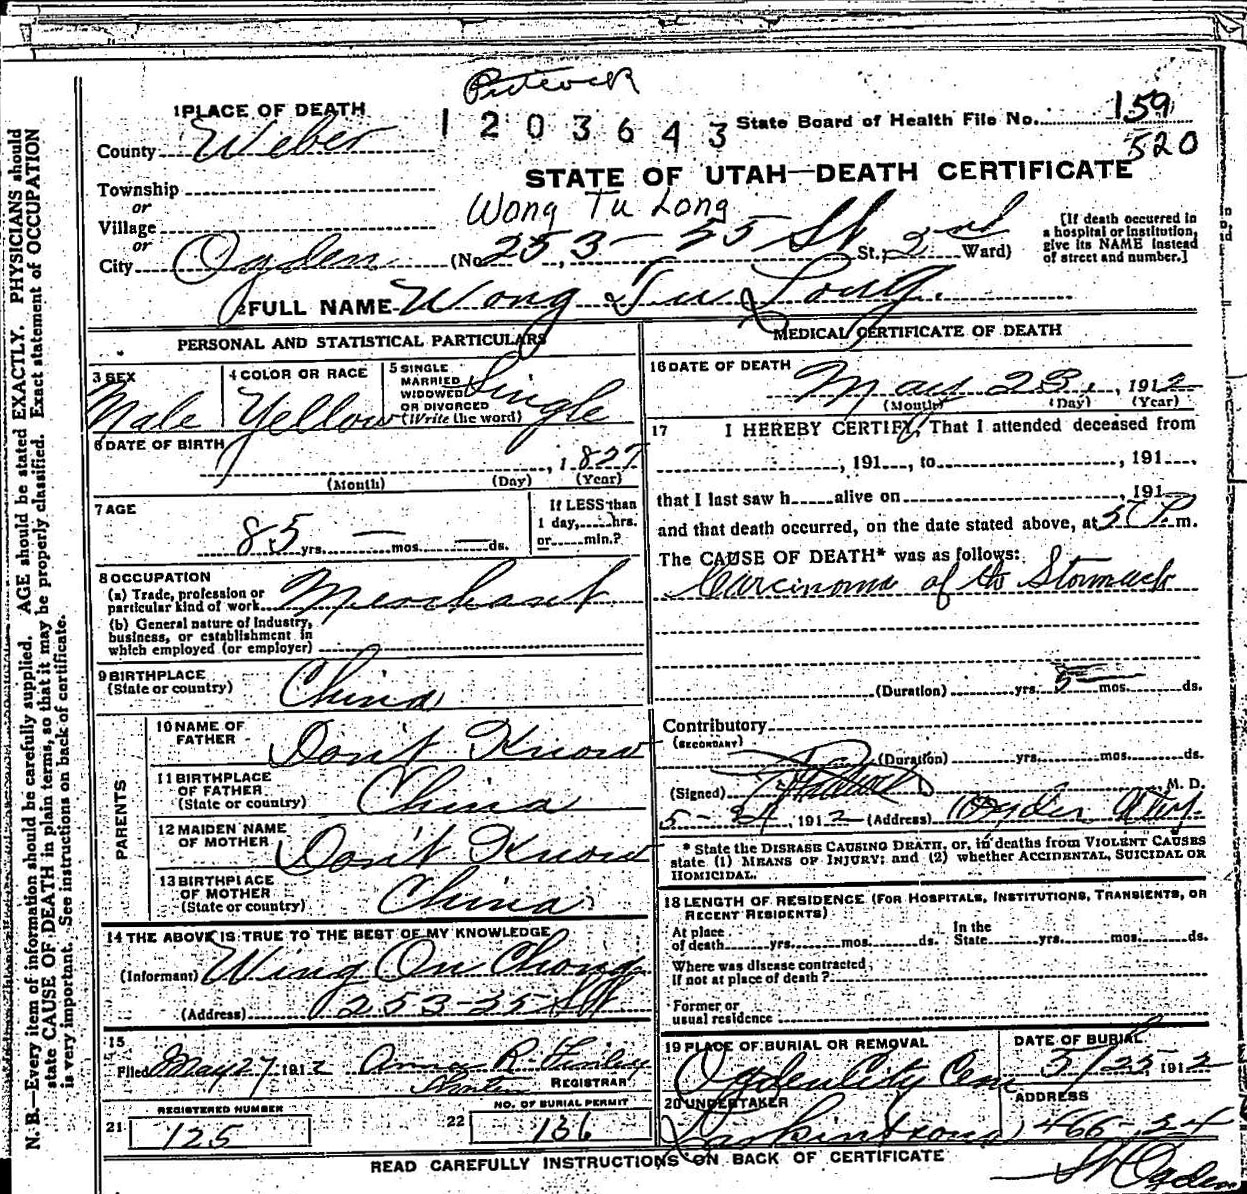 1 PLACE OF DEATH
1203643
State Board of Health File No. 159
520
County Weber
STATE OF UTAH—DEATH CERTIFICATE
Township
or
Wong Tu Long
Village
or
City Ogden (No. 253-25 St St., 2nd Ward)
[If death occurred in
a hospital or institution,
give its NAME instead
of street and number.]
2 FULL NAME Wong Tu Long.
PERSONAL AND STATISTICAL PARTICULARS
3 SEX
Male
4 COLOR OR RACE
Yellow
5 SINGLE
MARRIED
WIDOWED
OR DIVORCED
(Write the word)
Single
6 DATE OF BIRTH
, 1827
(Month) (Day) (Year)
7 AGE
85 yrs. — mos. — ds.
If LESS than
1 day, hrs.
or min.?
8 OCCUPATION
(a) Trade, profession or
particular kind of work Merchant
(b) General nature of industry,
business, or establishment in
which employed (or employer)
9 BIRTHPLACE
(State or country) China
PARENTS
10 NAME OF
FATHER Don't Know
11 BIRTHPLACE
OF FATHER
(State or country) China
12 MAIDEN NAME
OF MOTHER Don't Know
13 BIRTHPLACE
OF MOTHER
(State or country) China
14 THE ABOVE IS TRUE TO THE BEST OF MY KNOWLEDGE
(Informant) Wing On Chong
(Address) 253-25 St
15
Filed May 27 1912 Anna R. Finley
REGISTRAR
REGISTERED NUMBER
21 125
NO. OF BURIAL PERMIT
22 136
MEDICAL CERTIFICATE OF DEATH
16 DATE OF DEATH
May 23, 1912
(Month) (Day) (Year)
17 I HEREBY CERTIFY, That I attended deceased from
, 191 , to , 191
that I last saw h alive on , 191
and that death occurred, on the date stated above, at 5 P. m.
The CAUSE OF DEATH* was as follows:
Carcinoma of the Stomach
(Duration) yrs. 5 mos. ds.
Contributory
(SECONDARY)
(Duration) yrs. mos. ds.
(Signed) M. D.
5-24, 1912 (Address) Ogden
* State the DISEASE CAUSING DEATH, or, in deaths from VIOLENT CAUSES
state (1) MEANS OF INJURY; and (2) whether ACCIDENTAL, SUICIDAL OR
HOMICIDAL.
18 LENGTH OF RESIDENCE (FOR HOSPITALS, INSTITUTIONS, TRANSIENTS, OR
RECENT RESIDENTS)
At place
of death yrs. mos. ds.
In the
State yrs. mos. ds.
Where was disease contracted,
if not at place of death?
Former or
usual residence
19 PLACE OF BURIAL OR REMOVAL
Ogden City Cem
DATE OF BURIAL
5/25 1912
20 UNDERTAKER
Larkin & Sons
ADDRESS
466-24
St Ogden
READ CAREFULLY INSTRUCTIONS ON BACK OF CERTIFICATE
N. B.—Every item of information should be carefully supplied. AGE should be stated EXACTLY. PHYSICIANS should
state CAUSE OF DEATH in plain terms, so that it may be properly classified. Exact statement of OCCUPATION
is very important. See instructions on back of certificate.